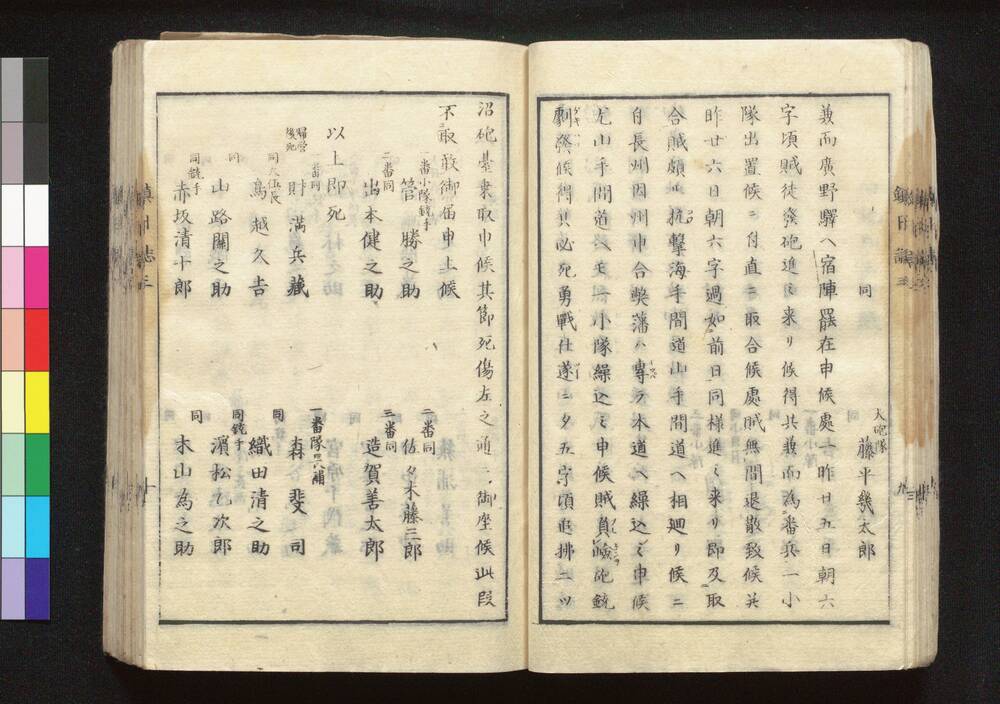 同 大砲隊 藤平幾太郎
兼而廣野驛ヘ宿陣罷在申候處去昨廿五日朝六
字頃賊徒發砲進ミ来リ候得共兼而為番兵一小
隊出置候ニ付直ニ取合候處賊無間退散致候共
昨廿六日朝六字過如前日同様進ミ来リ即及取
合賊頗ル抗撃海手間道山手間道ヘ相廻リ候ニ
付長州因州申合弊藩ハ專ラ本道ヘ繰込ミ申候
尤山手間道ヘモ一小隊繰込ミ申候賊真險砲銃
劇發候得共必死勇戰仕遂ニ夕五字頃追拂二ツ
沼砲臺乗取申候其節死傷左之通ニ御座候此段
不取敢御届申上候
一番小隊銃手 管勝之助
二番同 佐々木藤三郎
二番同 出本健之助
三番同 造賀善太郎
以上即死
歸營後死 一番同 財満兵藏
一番隊照補 森斐司
同大伍長 鳥越久吉
同 織田清之助
同 山路關之助
同銃手 濱松乙次郎
同銃手 赤坂清十郎
同 木山為之助
鎮日誌三
九
十